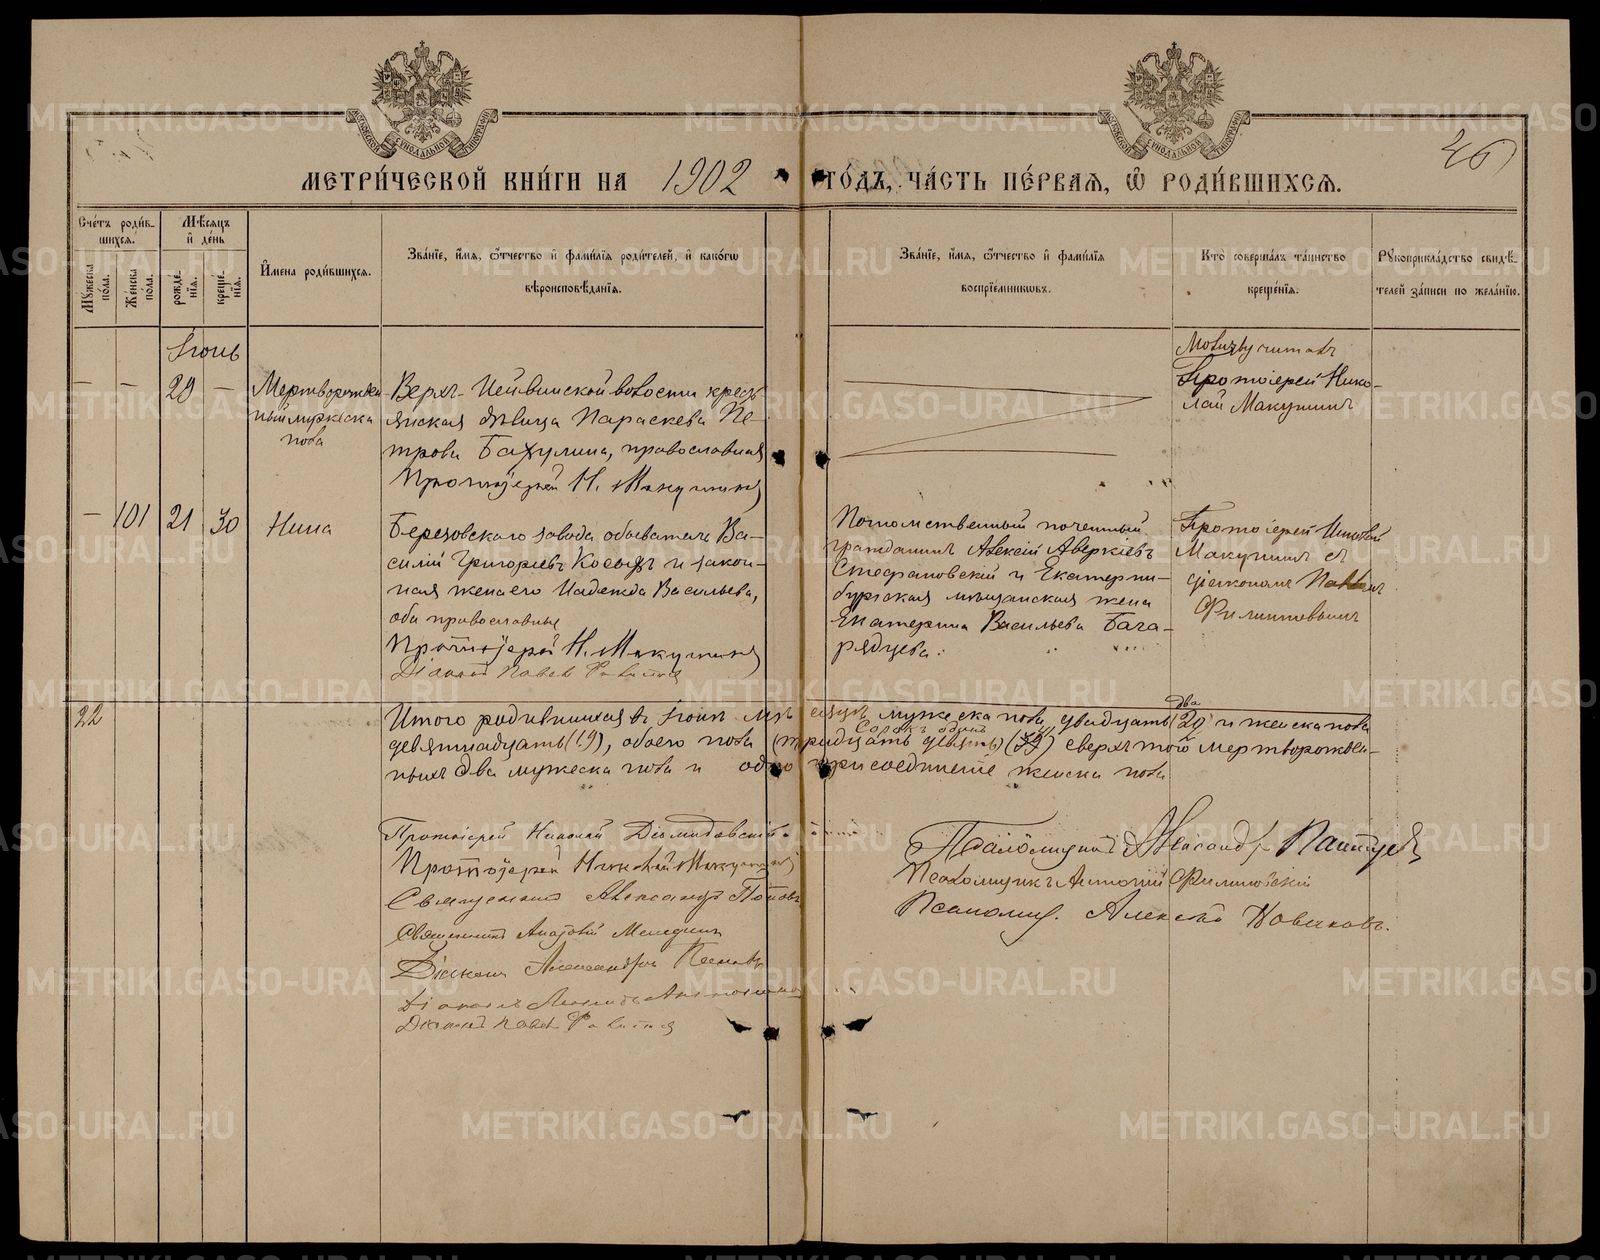 МЕТРИ́ЧЕСКОЙ КНИ́ГИ НА 1902 ГО́ДЪ, ЧА́СТЬ ПЕ́РВАЯ, Ѿ РОДИ́ВШИХСЯ.
46
Сче́тъ роди́в-
шихся.
Му́жеска по́ла.
Же́нска по́ла.
Мѣ́сяцъ и де́нь
рожде́-
нїя.
креще́-
нїя.
И́мена роди́вшихся.
Зва́нїе, и́мя, ѻ́тчество и фами́лїя роди́телей, и како́гѡ
вѣроисповѣ́данїя.
Зва́нїе, и́мя, ѻ́тчество и фами́лїя
воспрїе́мникѡвъ.
Кто̀ соверша́лъ та́инство
креще́нїя.
Рꙋкоприкла́дство свидѣ́-
телей за́писи по жела́нїю.
Іюнь
— — 29 —
Мертворожден
ный мужеска
пола
Верхъ-Нейвинской волости крестъ
янская дѣвица Параскева Пе-
трова Бахулина, православная
Протоіерей Н. Макушинъ
Молитву читалъ
Протоіерей Нико-
лай Макушинъ
— 101 21 30
Нина
Березовскаго завода обыватель Ва-
силій Григорьевъ Косыхъ и закон-
ная жена его Надежда Васильева,
оба православные
Протоіерей Н. Макушинъ
Діаконъ Павелъ
Потомственный почетный
гражданинъ Алексій Аверкіевъ
Стефановскій и Екатерин-
бургская мѣщанская жена
Екатерина Васильева Бага-
рядцева.
Протоіерей Николай
Макушинъ съ
діакономъ
22
Итого родившихся въ Іюнѣ мѣсяцѣ мужеска пола двадцать два и женска пола
девятнадцать (19), обоего пола (тридцать девять) сорокъ одинъ (39) сверхъ того мертворожден-
ныхъ два мужеска пола и одно присоединеніе женска пола
Протоіерей Николай Діомидовскій
Протоіерей Николай Макушинъ
Священникъ Александръ Поповъ
Священникъ
Діаконъ Александръ
Діаконъ
Діаконъ Павелъ
Псаломщикъ Александръ
Псаломщикъ Антоній Филиповскій
Псаломщ. Алексѣй Новиковъ.
METRIKI.GASO-URAL.RU